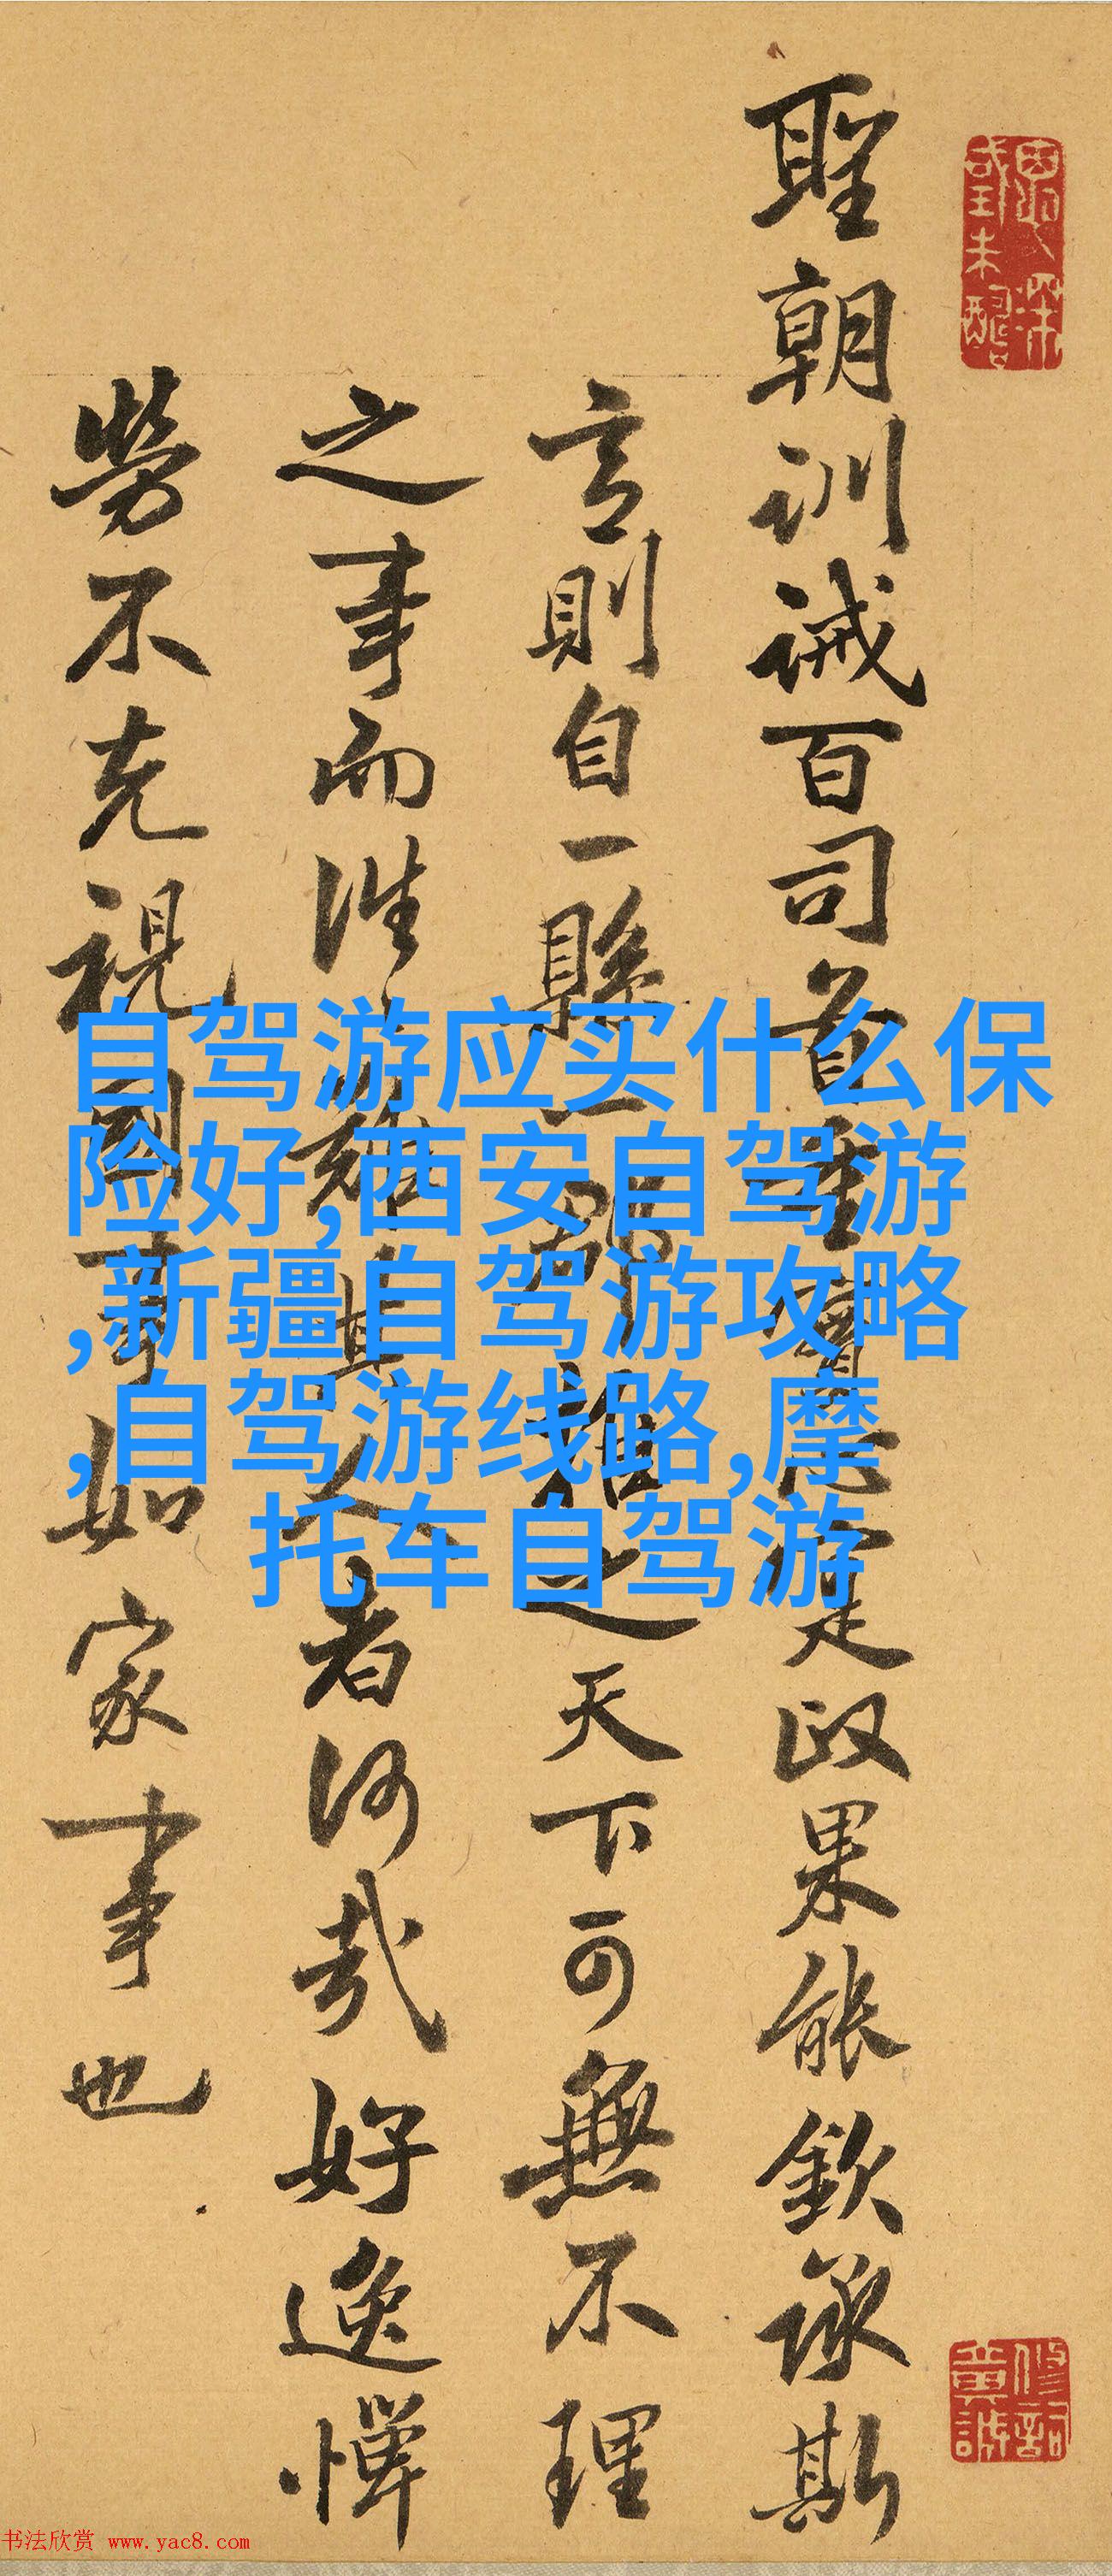 聖朝訓誡百司首重
是政果能欽承斯
言則自一縣
之天下可無不理
之事而
其人者何哉好逸憚
勞不克視國事如家事也
自驾游应买什么保
险好,西安自驾游
,新疆自驾游攻略
,自驾游线路,摩
托车自驾游
书法欣赏 www.yac8.com